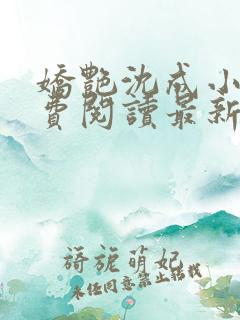 嬌艷沈戒小
費閱讀最新
旖旎萌妃
未经同意禁止转载